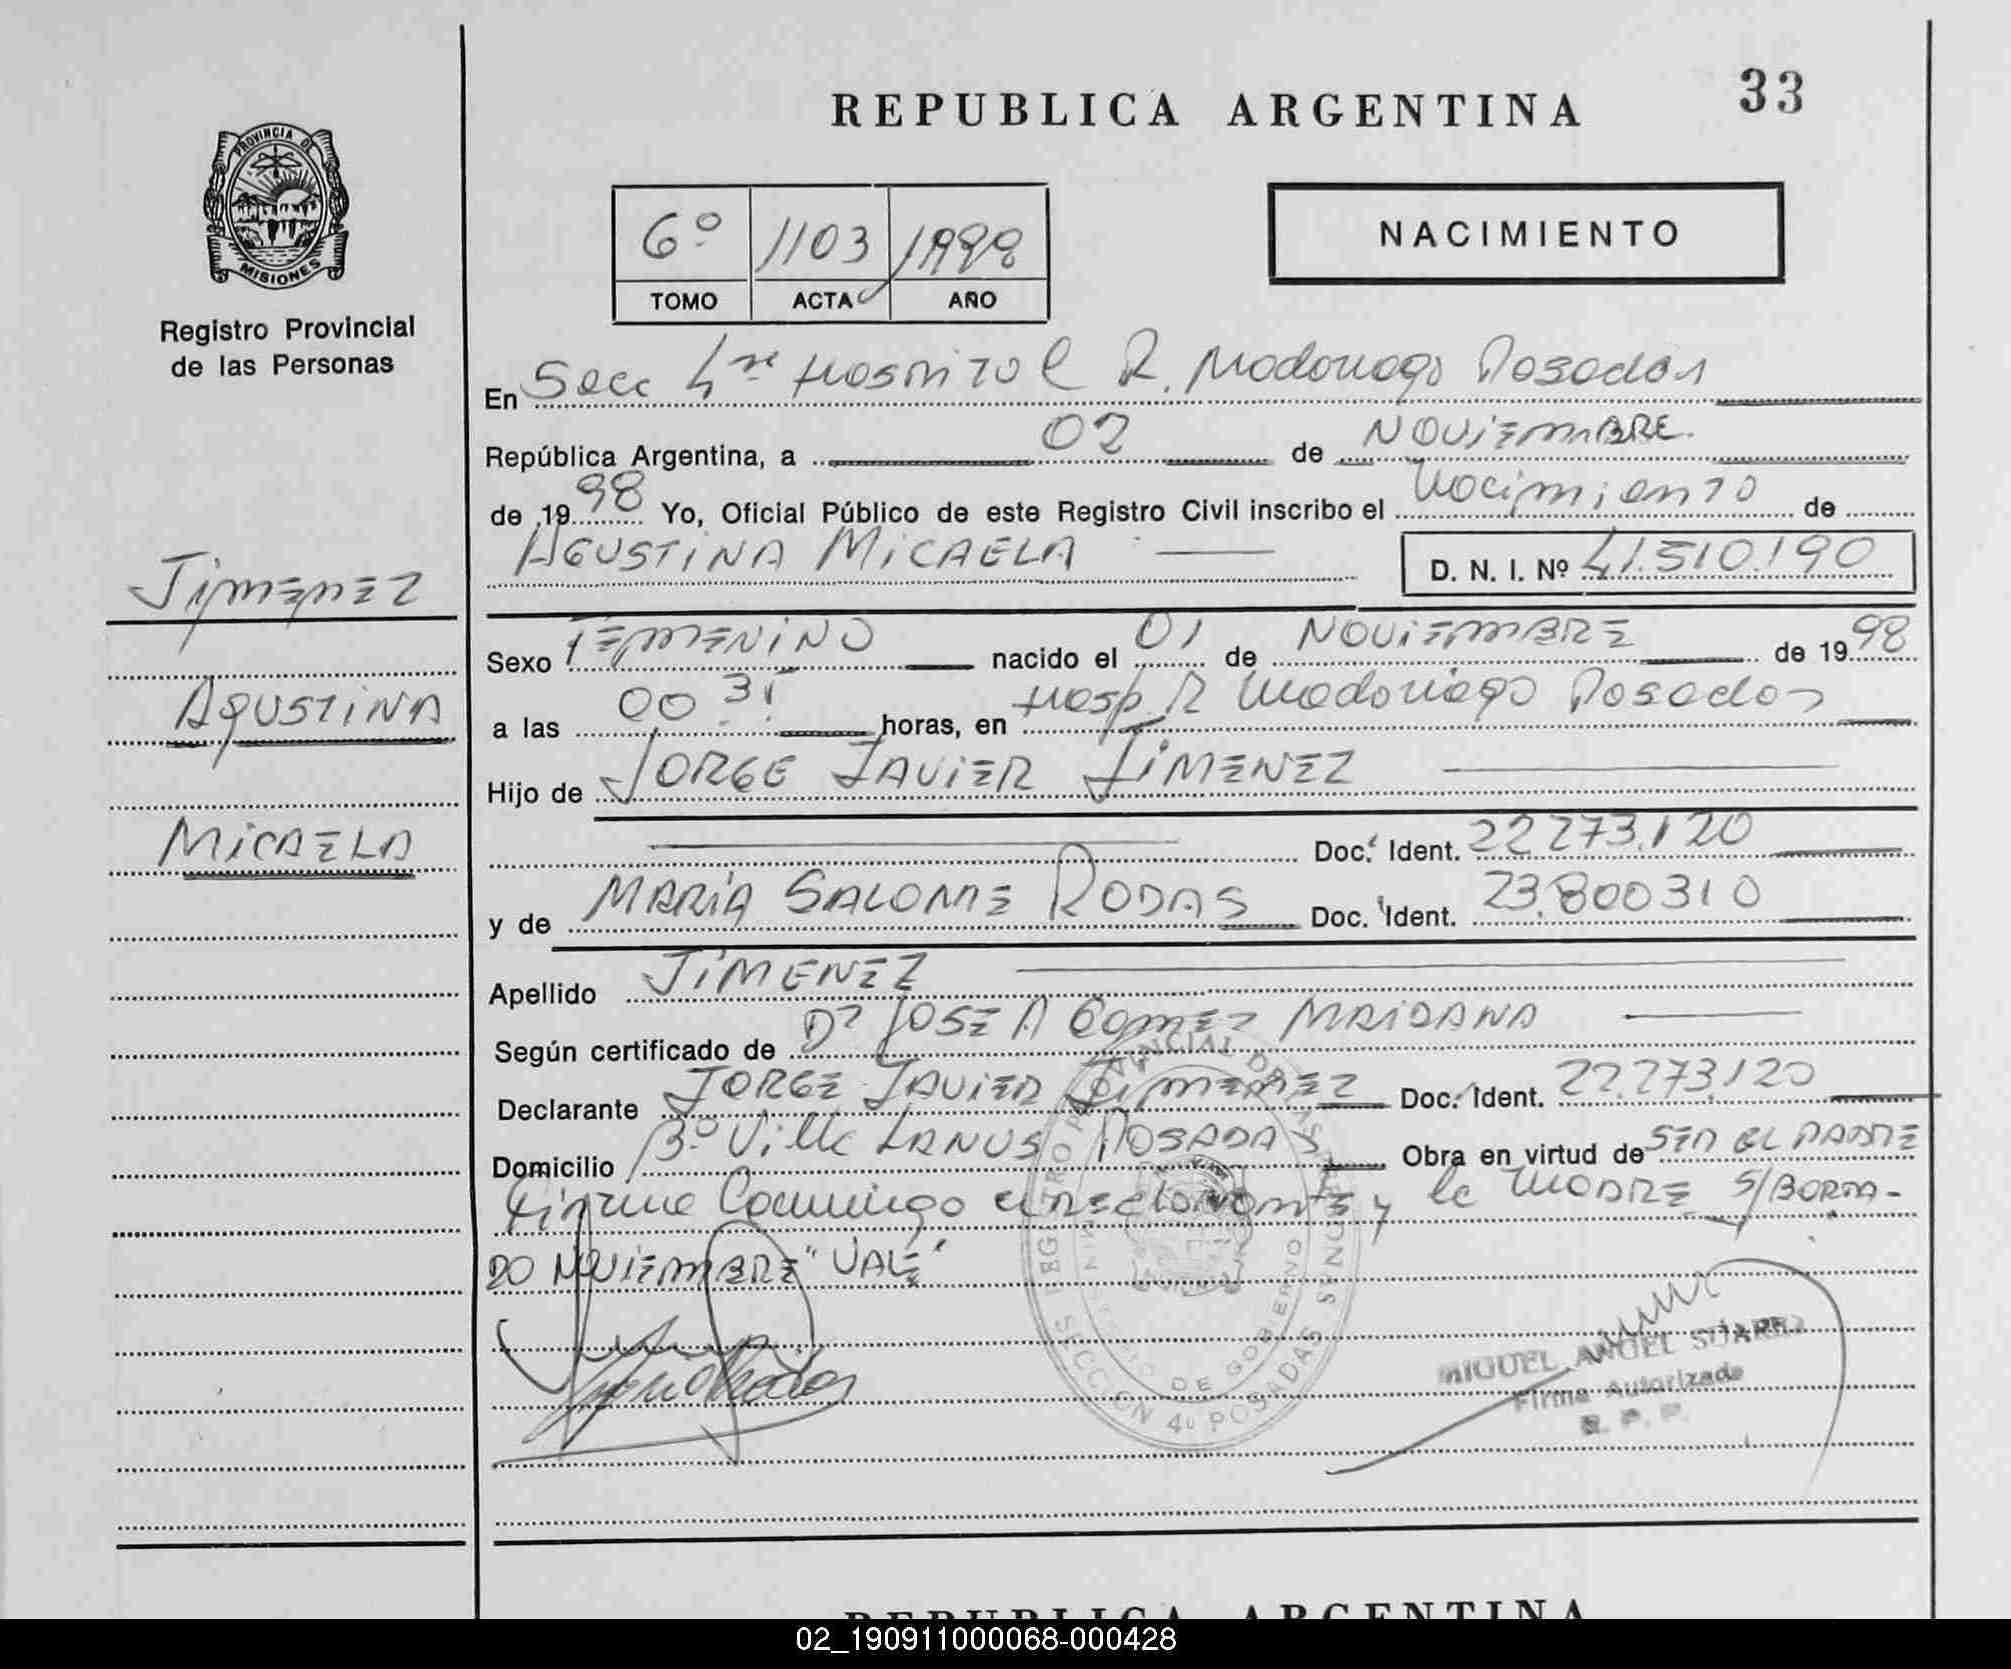 REPUBLICA ARGENTINA
33
PROVINCIA DE
MISIONES
Registro Provincial
de las Personas
6º 1103 1998
TOMO ACTA AÑO
NACIMIENTO
En Secc 4ta Hospital R. Madariaga Posadas
República Argentina, a 02 de NOVIEMBRE.
de 1998 Yo, Oficial Público de este Registro Civil inscribo el nacimiento de
AGUSTINA MICAELA
D. N. I. Nº 41.510.190
JIMENEZ
AGUSTINA
MICAELA
Sexo FEMENINO nacido el 01 de NOVIEMBRE de 1998
a las 00 35 horas, en Hosp. R Madariaga Posadas
Hijo de JORGE JAVIER JIMENEZ
Doc. Ident. 22273.120
y de MARÍA SALOME RODAS Doc. Ident. 23.800310
Apellido JIMENEZ
Según certificado de Dr JOSE A GOMEZ MAIDANA
Declarante JORGE JAVIER JIMENEZ Doc. Ident. 22.273.120
Domicilio Bº Villa LANUS POSADAS Obra en virtud de SER EL PADRE
firma conmigo el declarante y la MADRE S/BORRA-
DO NOVIEMBRE "VALE"
REGISTRO PROVINCIAL DE LAS PERSONAS
MINISTERIO DE GOBIERNO
SECCION 4º POSADAS
MIGUEL ANGEL SUAREZ
Firma Autorizada
R. P. P.
REPUBLICA ARGENTINA
02_190911000068-000428